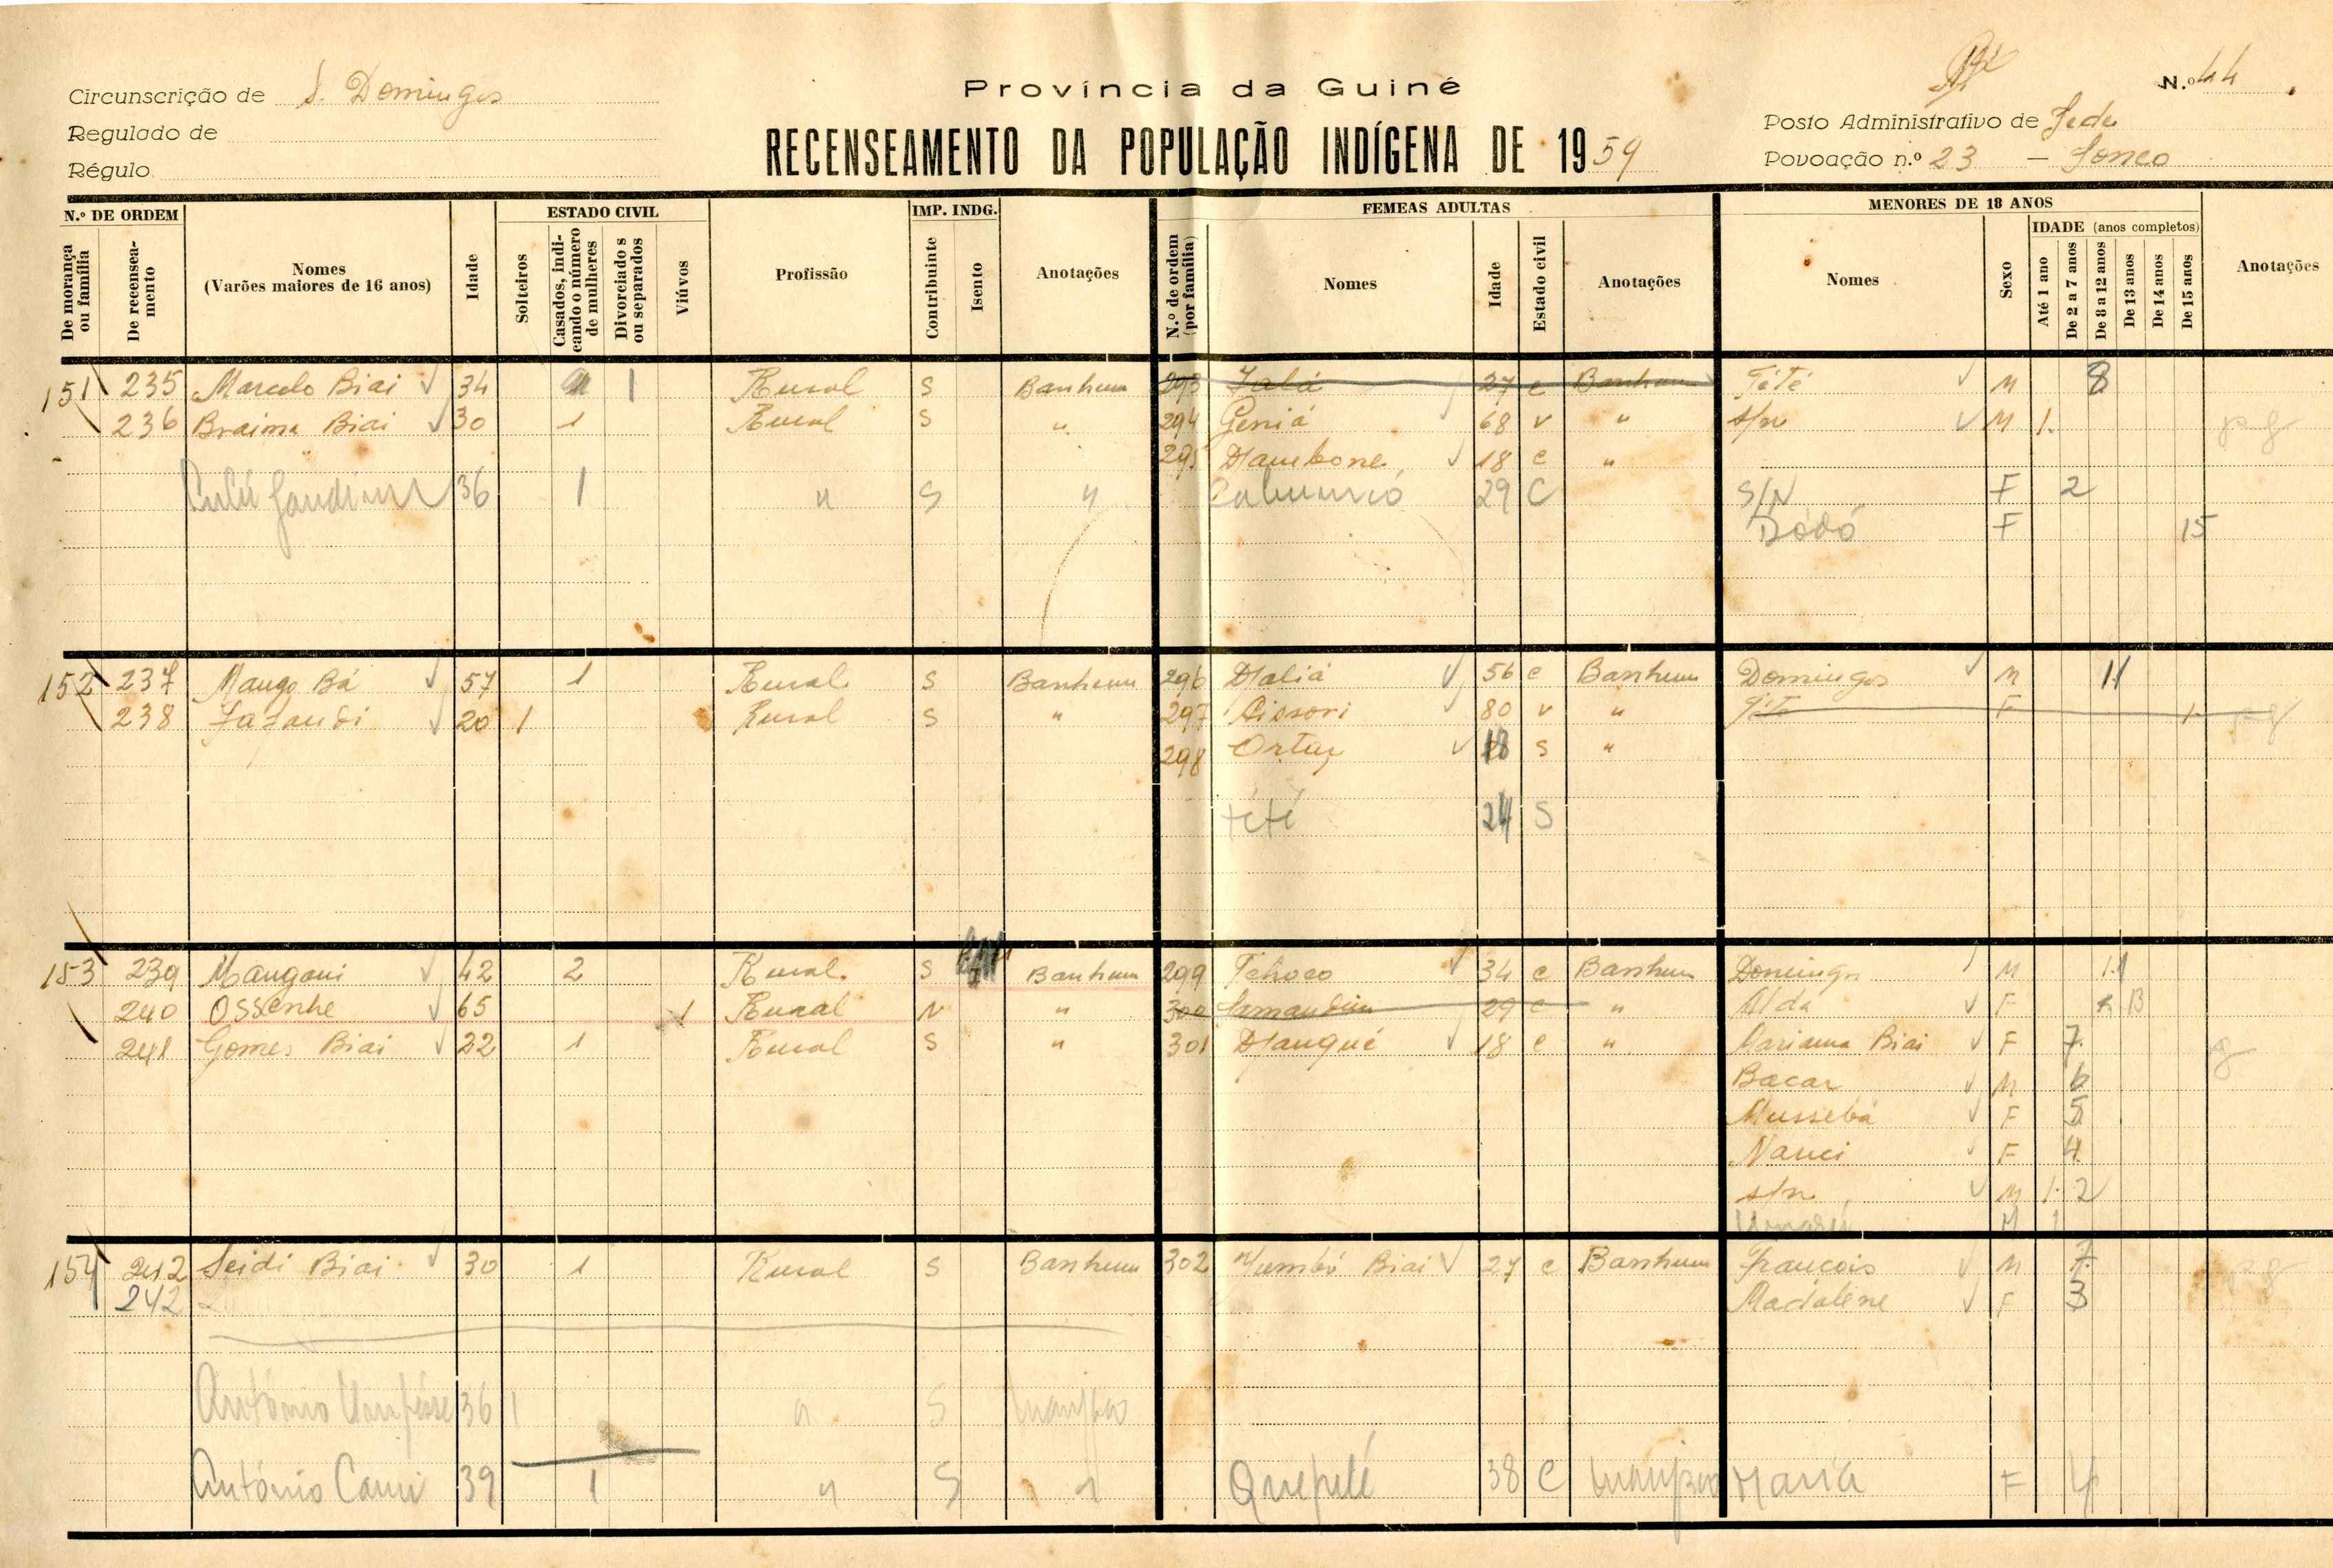 Província da Guiné
N.º 44
Circunscrição de S. Domingos
Regulado de
Régulo
RECENSEAMENTO DA POPULAÇÃO INDÍGENA DE 1959
Posto Administrativo de
Povoação n.º 23 —
N.º DE ORDEM
De morança ou família
De recenseamento
Nomes
(Varões maiores de 16 anos)
Idade
ESTADO CIVIL
Solteiros
Casados, indicando o número de mulheres
Divorciados ou separados
Viúvos
Profissão
IMP. INDG.
Contribuinte
Isento
Anotações
FEMEAS ADULTAS
N.º de ordem (por família)
Nomes
Idade
Estado civil
Anotações
MENORES DE 18 ANOS
Nomes
Sexo
IDADE (anos completos)
Até 1 ano
De 2 a 7 anos
De 8 a 12 anos
De 13 anos
De 14 anos
De 15 anos
Anotações
151 235 Marcelo Biai 34 1 Rural S Banhum 293 27 c Banhum Tété M 8
236 Braima Biai 30 1 Rural S " 294 Geniá 68 v " s/n M 1
295 Djambone 18 c "
36 1 " S " 29 C S/N F 2
Dódó F 15
152 237 Mango Bá 57 1 Rural S Banhum 296 Djaliá 56 c Banhum Domingos M 11
238 20 1 Rural S " 297 Cissori 80 v " F
298 18 S "
teté 24 S
153 239 Mangoni 42 2 Rural S Banhum 299 Tchoco 34 c Banhum Domingos M 11
240 Ossenhe 65 1 Rural N " 300 29 c " Alda F
241 Gomes Biai 22 1 Rural S " 301 Djangué 18 c " Mariama Biai F 7
Bacar M 6
Mussebá F 5
Nanci F 4
s/n M 2
M 1
154 242 Seidi Biai 30 1 Rural S Banhum 302 Biai 27 c Banhum François M 7
242 Madalene F 3
António 36 1 " S
António 39 1 " S " Quepelé 38 C Maria F 4